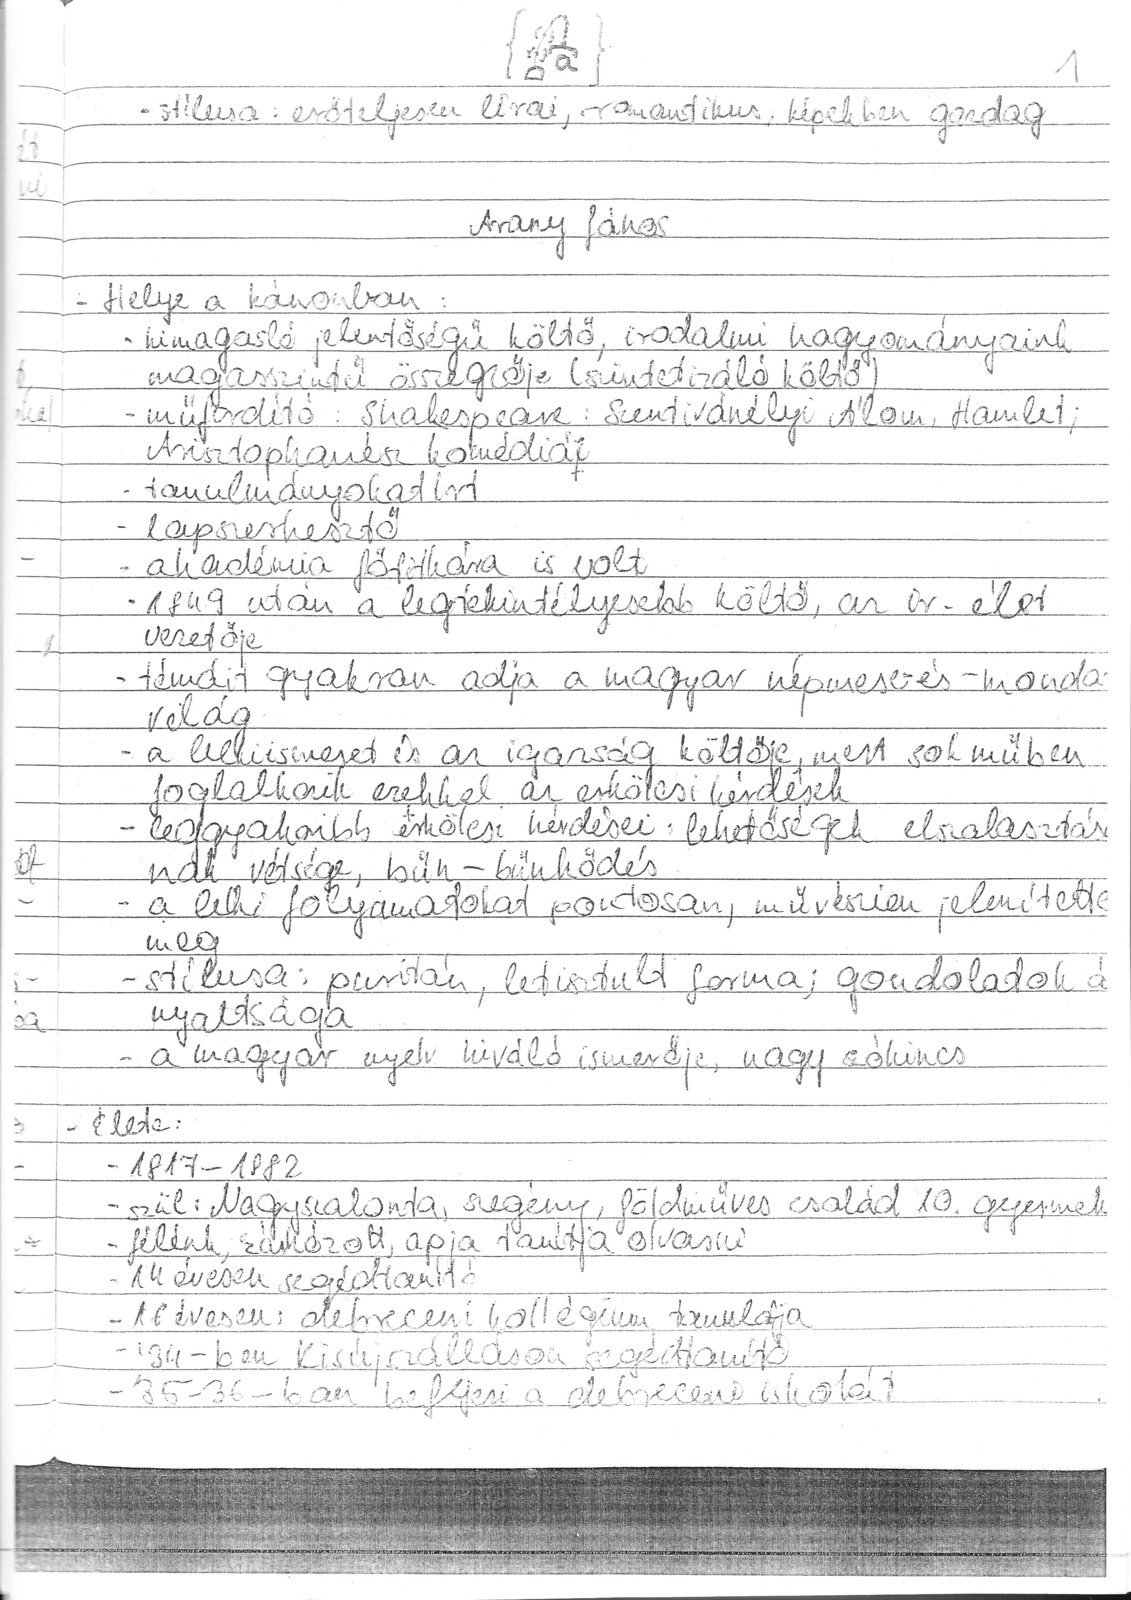 1
- stílusa: erőteljesen lírai, romantikus, képekben gazdag
Arany János
- Helye a kánonban:
- kimagasló jelentőségű költő, irodalmi hagyományaink
magasszintű összegzője (szintetizáló költő)
- műfordító: Shakespeare: Szentivánélyi Álom, Hamlet;
Arisztophanész komédiát
- tanulmányokat írt
- lapszerkesztő
- akadémia főtitkára is volt
- 1849 után a legtekintélyesebb költő, az ir. élet
vezetője
- témáit gyakran adja a magyar népmese-és-monda-
világ
- a lelkiismeret és az igazság költője, mert sok műben
foglalkozik ezekkel az erkölcsi kérdések
- leggyakoribb erkölcsi kérdései: lehetőségek elszalasztásá
nak vétsége, bűn-bűnhődés
- a lelki folyamatokat pontosan, művészien jelenítette
meg
- stílusa: puritán, letisztult forma; gondolatok á
nyaltsága
- a magyar nyelv kiváló ismerője, nagy szókincs
- Élete:
- 1817-1882
- szül: Nagyszalonta, szegény, földműves család 10. gyermek
- félénk, zárkózott, apja tanítja olvasni
- 14 évesen segédtanító
- 16 évesen: debreceni kollégium tanulója
- '34-ben Kisújszálláson segédtanító
- 35-36-ban befejezi a debreceni iskolát